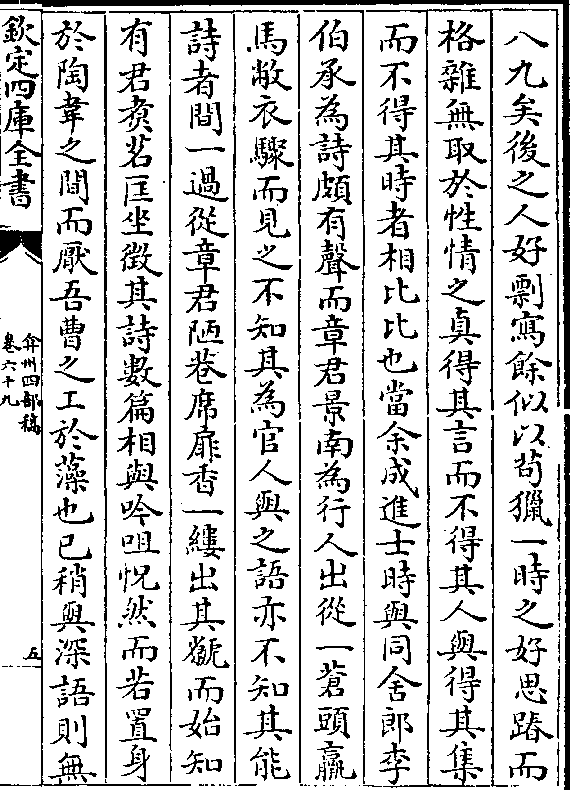 八九矣後之人好剽寫餘似以苟獵一時之好思踳而
格雜無取於性情之真得其言而不得其人與得其集
而不得其時者相比比也當余成進士時與同舍郎李
伯承為詩頗有聲而章君景南為行人出從一蒼頭羸
馬敝衣驟而見之不知其為官人與之語亦不知其能
詩者間一過從章君陋巷席扉香一縷出其𩜙而始知
有君煑茗匡坐徵其詩數篇相與吟咀怳然而若置身
於陶韋之間而厭吾曹之工於藻也已稍與深語則無
欽定四庫全書
弇州四部稿
卷六十九
五